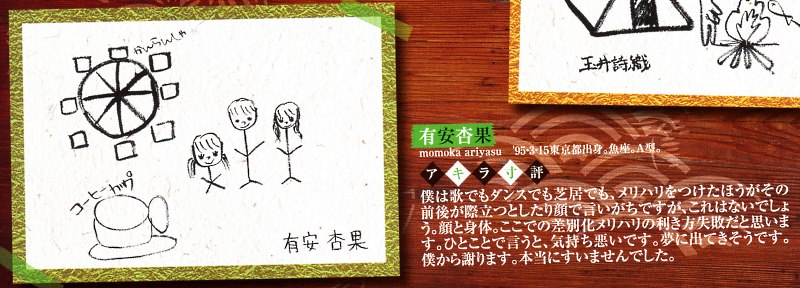 かんらんしゃ
コーヒーカップ
有安杏果
玉井詩織
有安杏果
momoka ariyasu '95・3・15東京都出身。魚座。A型。
アキラ寸評
僕は歌でもダンスでも芝居でも、メリハリをつけたほうがその
前後が際立つとしたり顔で言いがちですが、これはないでしょ
う。顔と身体。ここでの差別化メリハリの利き方失敗だと思いま
す。ひとことで言うと、気持ち悪いです。夢に出てきそうです。
僕から謝ります。本当にすいませんでした。